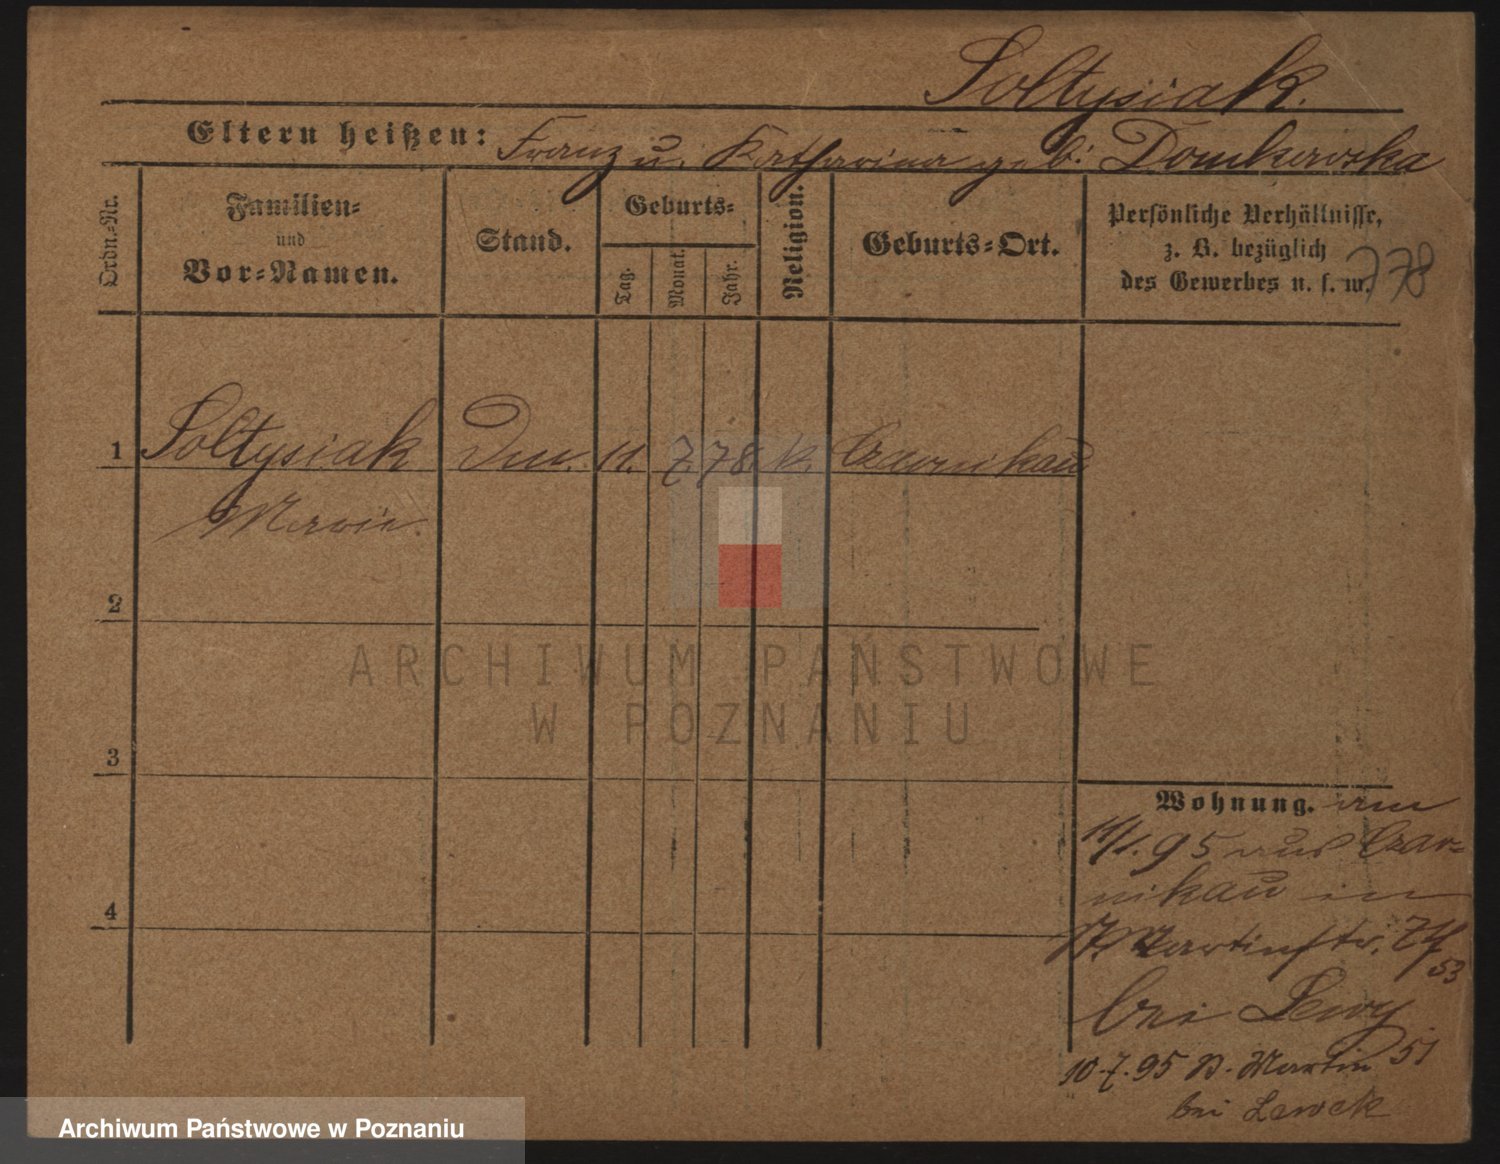 Soltysiak.
Eltern heißen: Franz u. Katharina geb: Domkowska
Ordn.-Nr.
Familien-
und
Vor-Namen.
Stand.
Geburts-
Tag.
Monat.
Jahr.
Religion.
Geburts-Ort.
Persönliche Verhältnisse,
z. B. bezüglich
des Gewerbes u. s. w.
778
1 Soltysiak 11. 7. 78. k. Czarnikau
Marie.
2
ARCHIWUM PAŃSTWOWE
W POZNANIU
3
Wohnung. am
11/1. 95 aus Czar-
nikau in
Martinstr.
53
bei Lewy
10.7.95 Martin 51
bei Lewek
4
Archiwum Państwowe w Poznaniu